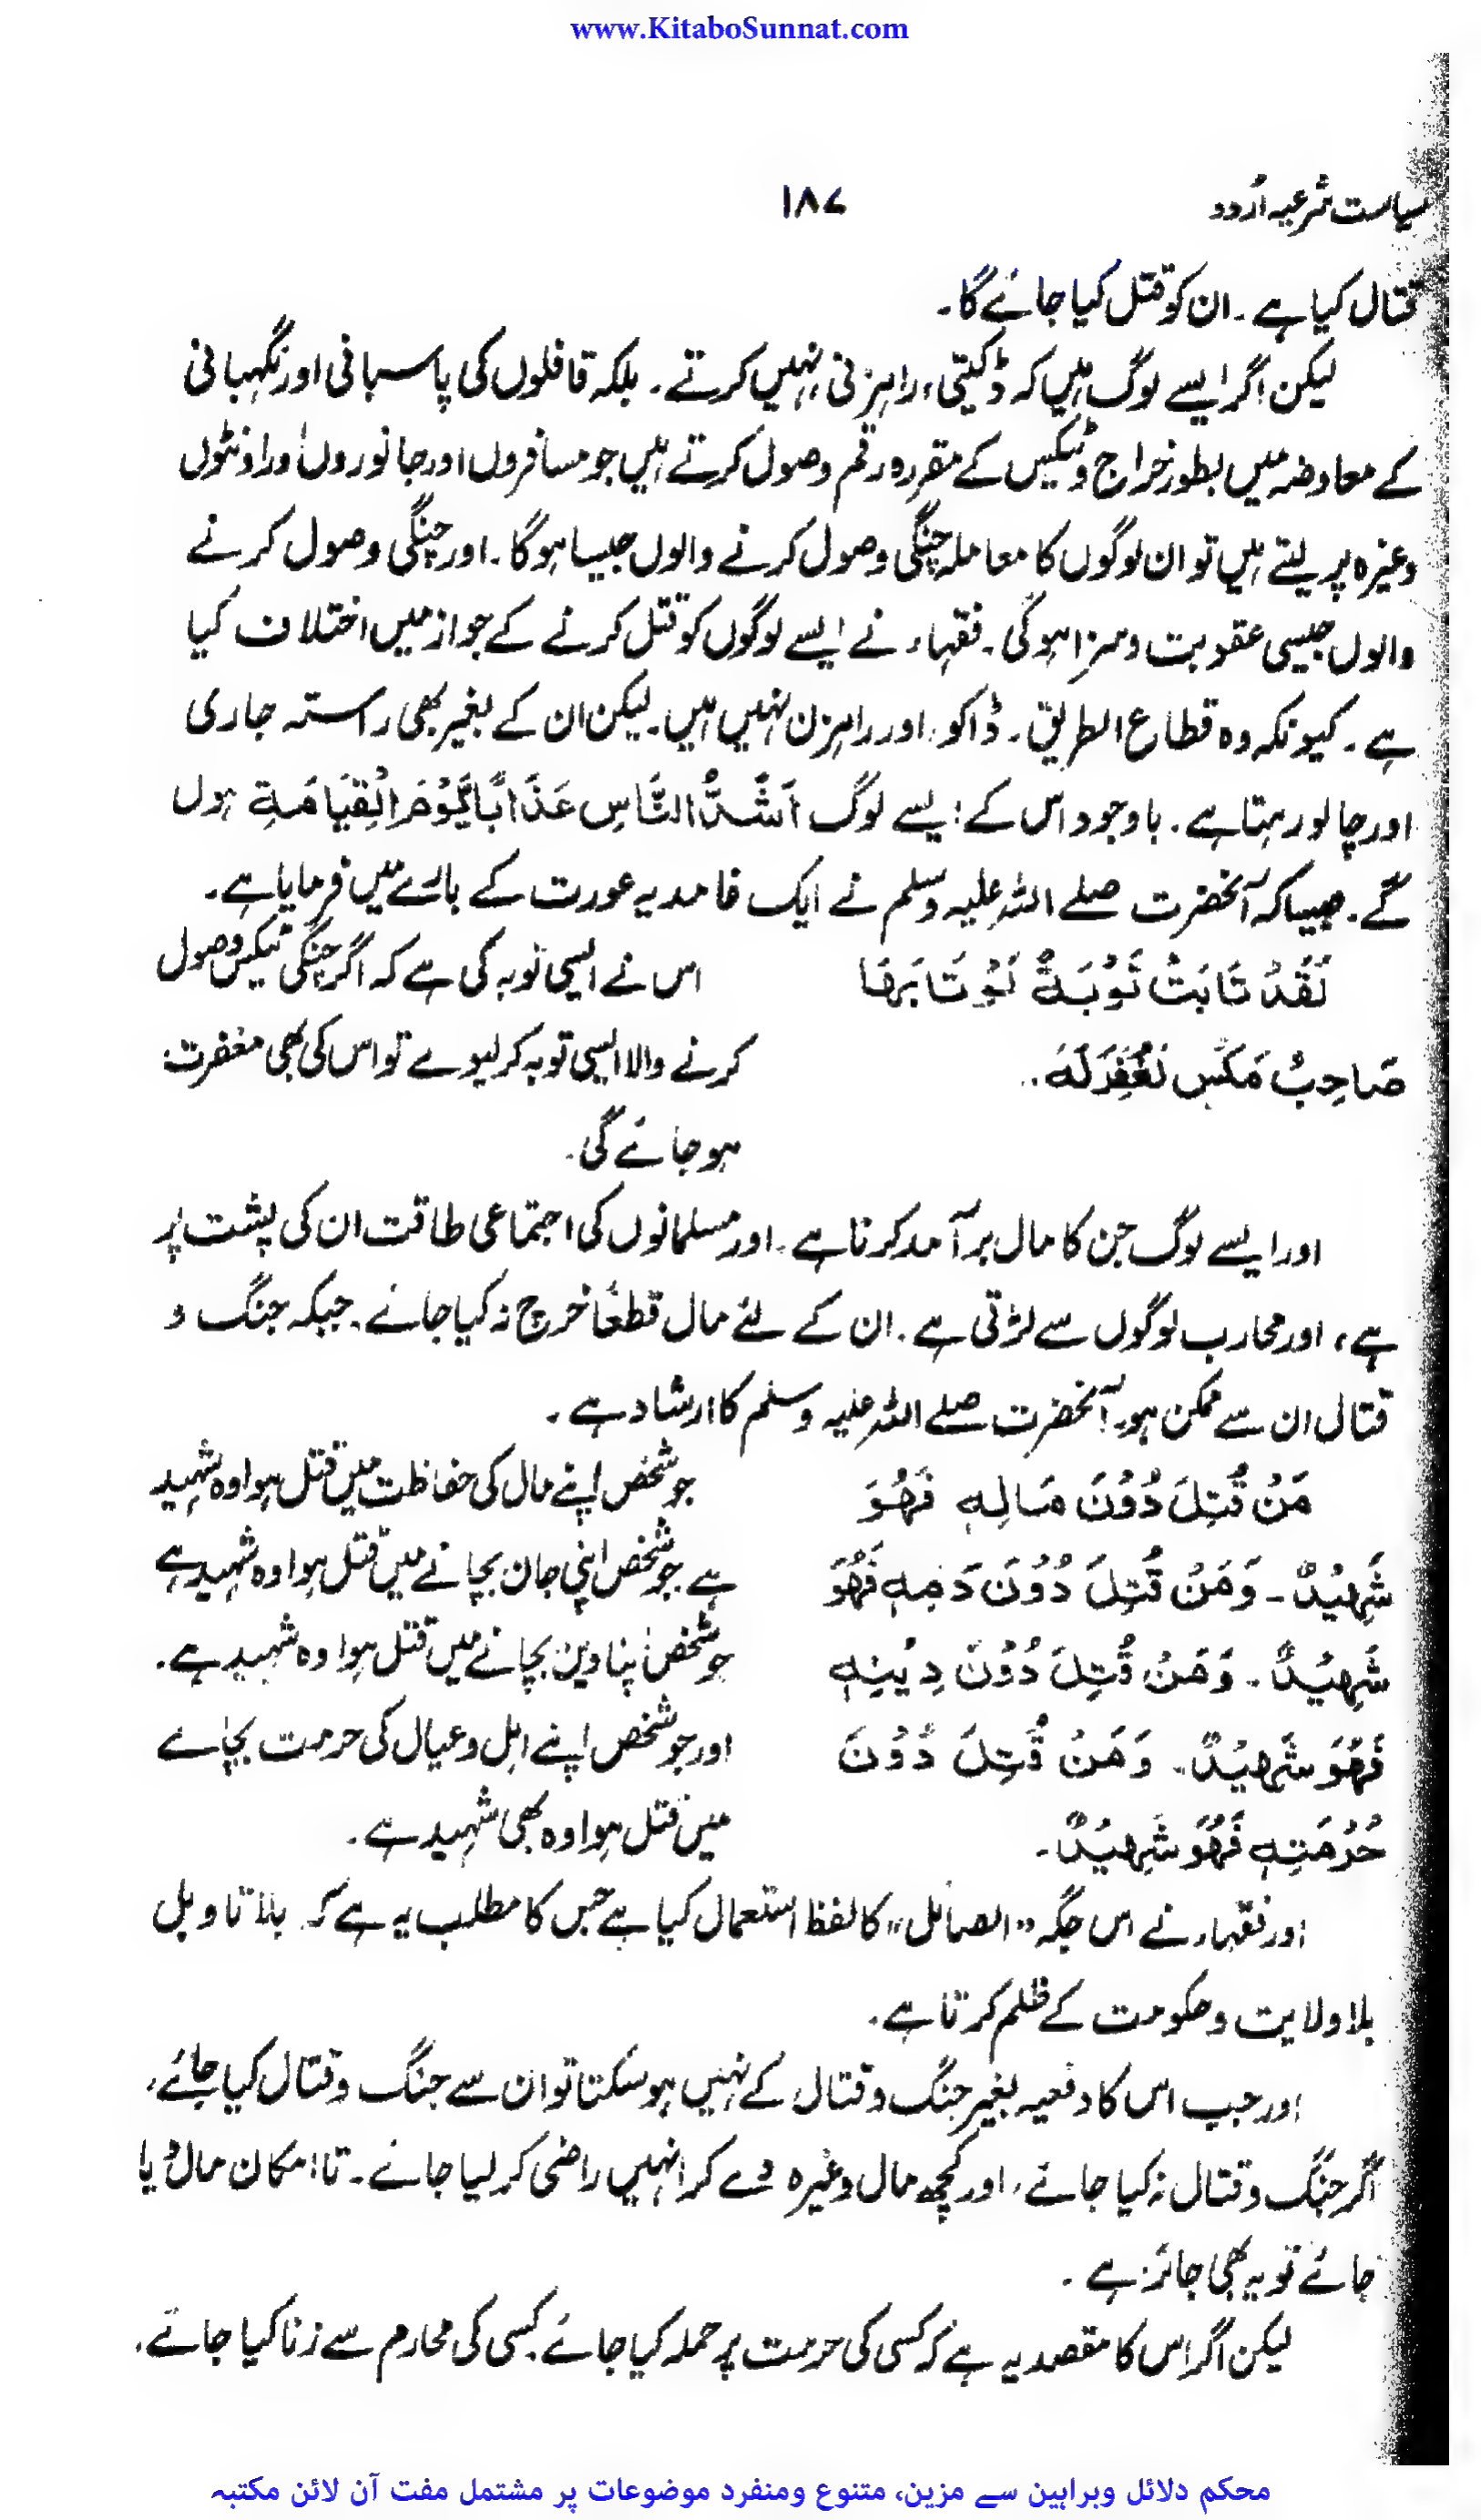 www.KitaboSunnat.com
سیاست شرعیہ اُردو
۱۸۷
قتال کیا ہے۔ ان کو قتل کیا جائے گا۔
لیکن اگر ایسے لوگ ہیں کہ ڈکیتی، راہزنی نہیں کرتے۔ بلکہ قافلوں کی پاسبانی اور نگہبانی
کے معاوضہ میں بطور خراج و ٹیکس کے مقررہ رقم وصول کرتے ہیں جو مسافروں اور جانوروں اور اونٹوں
وغیرہ پر لیتے ہیں تو ان لوگوں کا معاملہ چنگی وصول کرنے والوں جیسا ہوگا۔ اور چنگی وصول کرنے
والوں جیسی عقوبت و سزا ہوگی۔ فقہاء نے ایسے لوگوں کو قتل کرنے کے جواز میں اختلاف کیا
ہے۔ کیونکہ وہ قطاع الطریق۔ ڈاکو، اور راہزن نہیں ہیں۔ لیکن ان کے بغیر بھی راستہ جاری
اور چالو رہتا ہے۔ باوجود اس کے ایسے لوگ اَشَدُّ النَّاسِ عَذَابًا یَّوْمَ الْقِیَامَۃِ ہوں
گے۔ جیسا کہ آنحضرت صلے اللہ علیہ وسلم نے ایک غامدیہ عورت کے بارے میں فرمایا ہے۔
لَقَدْ تَابَتْ تَوْبَۃً لَوْ تَابَهَا
اس نے ایسی توبہ کی ہے کہ اگر چنگی ٹیکس وصول
صَاحِبُ مَکْسٍ لَغُفِرَ لَہٗ۔
کرنے والا ایسی توبہ کر لیوے تو اس کی بھی مغفرت
ہو جائے گی۔
اور ایسے لوگ جن کا مال برآمد کرنا ہے۔ اور مسلمانوں کی اجتماعی طاقت ان کی پشت پر
ہے، اور محارب لوگوں سے لڑتی ہے۔ ان کے لئے مال قطعًا خرچ نہ کیا جائے۔ جبکہ جنگ و
قتال ان سے ممکن ہو۔ آنحضرت صلے اللہ علیہ وسلم کا ارشاد ہے۔
مَنْ قُتِلَ دُوْنَ مَالِہٖ فَهُوَ
جو شخص اپنے مال کی حفاظت میں قتل ہوا وہ شہید
شَهِیْدٌ۔ وَمَنْ قُتِلَ دُوْنَ دَمِہٖ فَهُوَ
ہے جو شخص اپنی جان بچانے میں قتل ہوا وہ شہید ہے
شَهِیْدٌ۔ وَمَنْ قُتِلَ دُوْنَ دِیْنِہٖ
جو شخص اپنا دین بچانے میں قتل ہوا وہ شہید ہے۔
فَهُوَ شَهِیْدٌ۔ وَمَنْ قُتِلَ دُوْنَ
اور جو شخص اپنے اہل و عیال کی حرمت بچانے
حُرْمَتِہٖ فَهُوَ شَهِیْدٌ۔
میں قتل ہوا وہ بھی شہید ہے۔
اور فقہاء نے اس جگہ "الصائل" کا لفظ استعمال کیا ہے جس کا مطلب یہ ہے کہ بلا تاویل
بلا ولایت و حکومت کے ظلم کرتا ہے۔
اور جب اس کا دفعیہ بغیر جنگ و قتال کے نہیں ہو سکتا تو ان سے جنگ و قتال کیا جائے،
اگر جنگ و قتال نہ کیا جائے، اور کچھ مال وغیرہ دے کر انہیں راضی کر لیا جائے۔ تا امکان مال دیا
جائے تو یہ بھی جائز ہے۔
لیکن اگر اس کا مقصد یہ ہے کہ کسی کی حرمت پر حملہ کیا جائے کسی کی محارم سے زنا کیا جائے،
محکم دلائل وبراہین سے مزین، متنوع ومنفرد موضوعات پر مشتمل مفت آن لائن مکتبہ